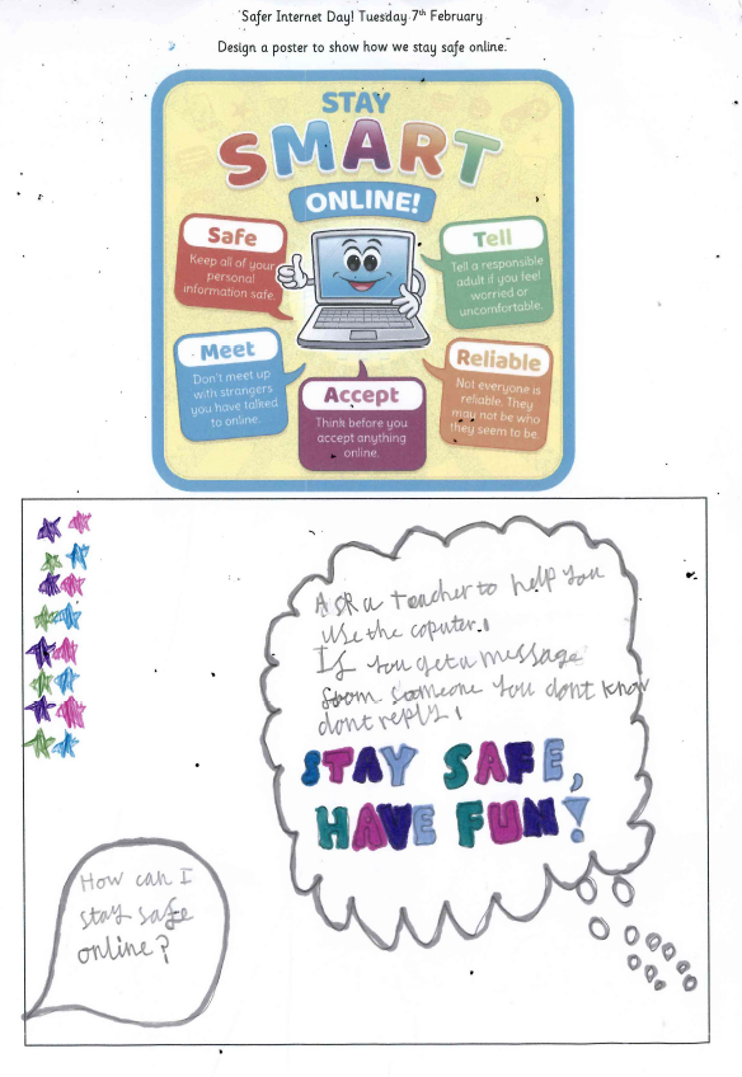 Safer Internet Day! Tuesday 7th February
Design a poster to show how we stay safe online.
STAY
SMART
ONLINE!
Safe
Keep all of your
personal
information safe.
Tell
Tell a responsible
adult if you feel
worried or
uncomfortable.
Meet
Don't meet up
with strangers
you have talked
to online.
Accept
Think before you
accept anything
online.
Reliable
Not everyone is
reliable. They
may not be who
they seem to be.
Ask a teacher to help you
use the coputer.
If you get a message
from someone you dont know
dont reply!
STAY SAFE,
HAVE FUN!
How can I
stay safe
online?